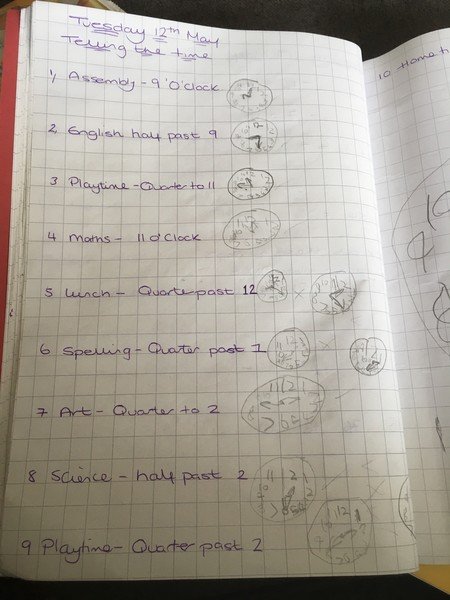 Tuesday 12th May
Telling the time
1, Assembly - 9 'O'clock
2, English half past 9
3 Playtime - Quarter to 11
4 Maths - 11 o'Clock
5 Lunch - Quarter past 12
6 Spelling - Quater past 1
7 Art - Quarter to 2
8 Science - half past 2
9 Playtime - Quarter past 2
10 Home